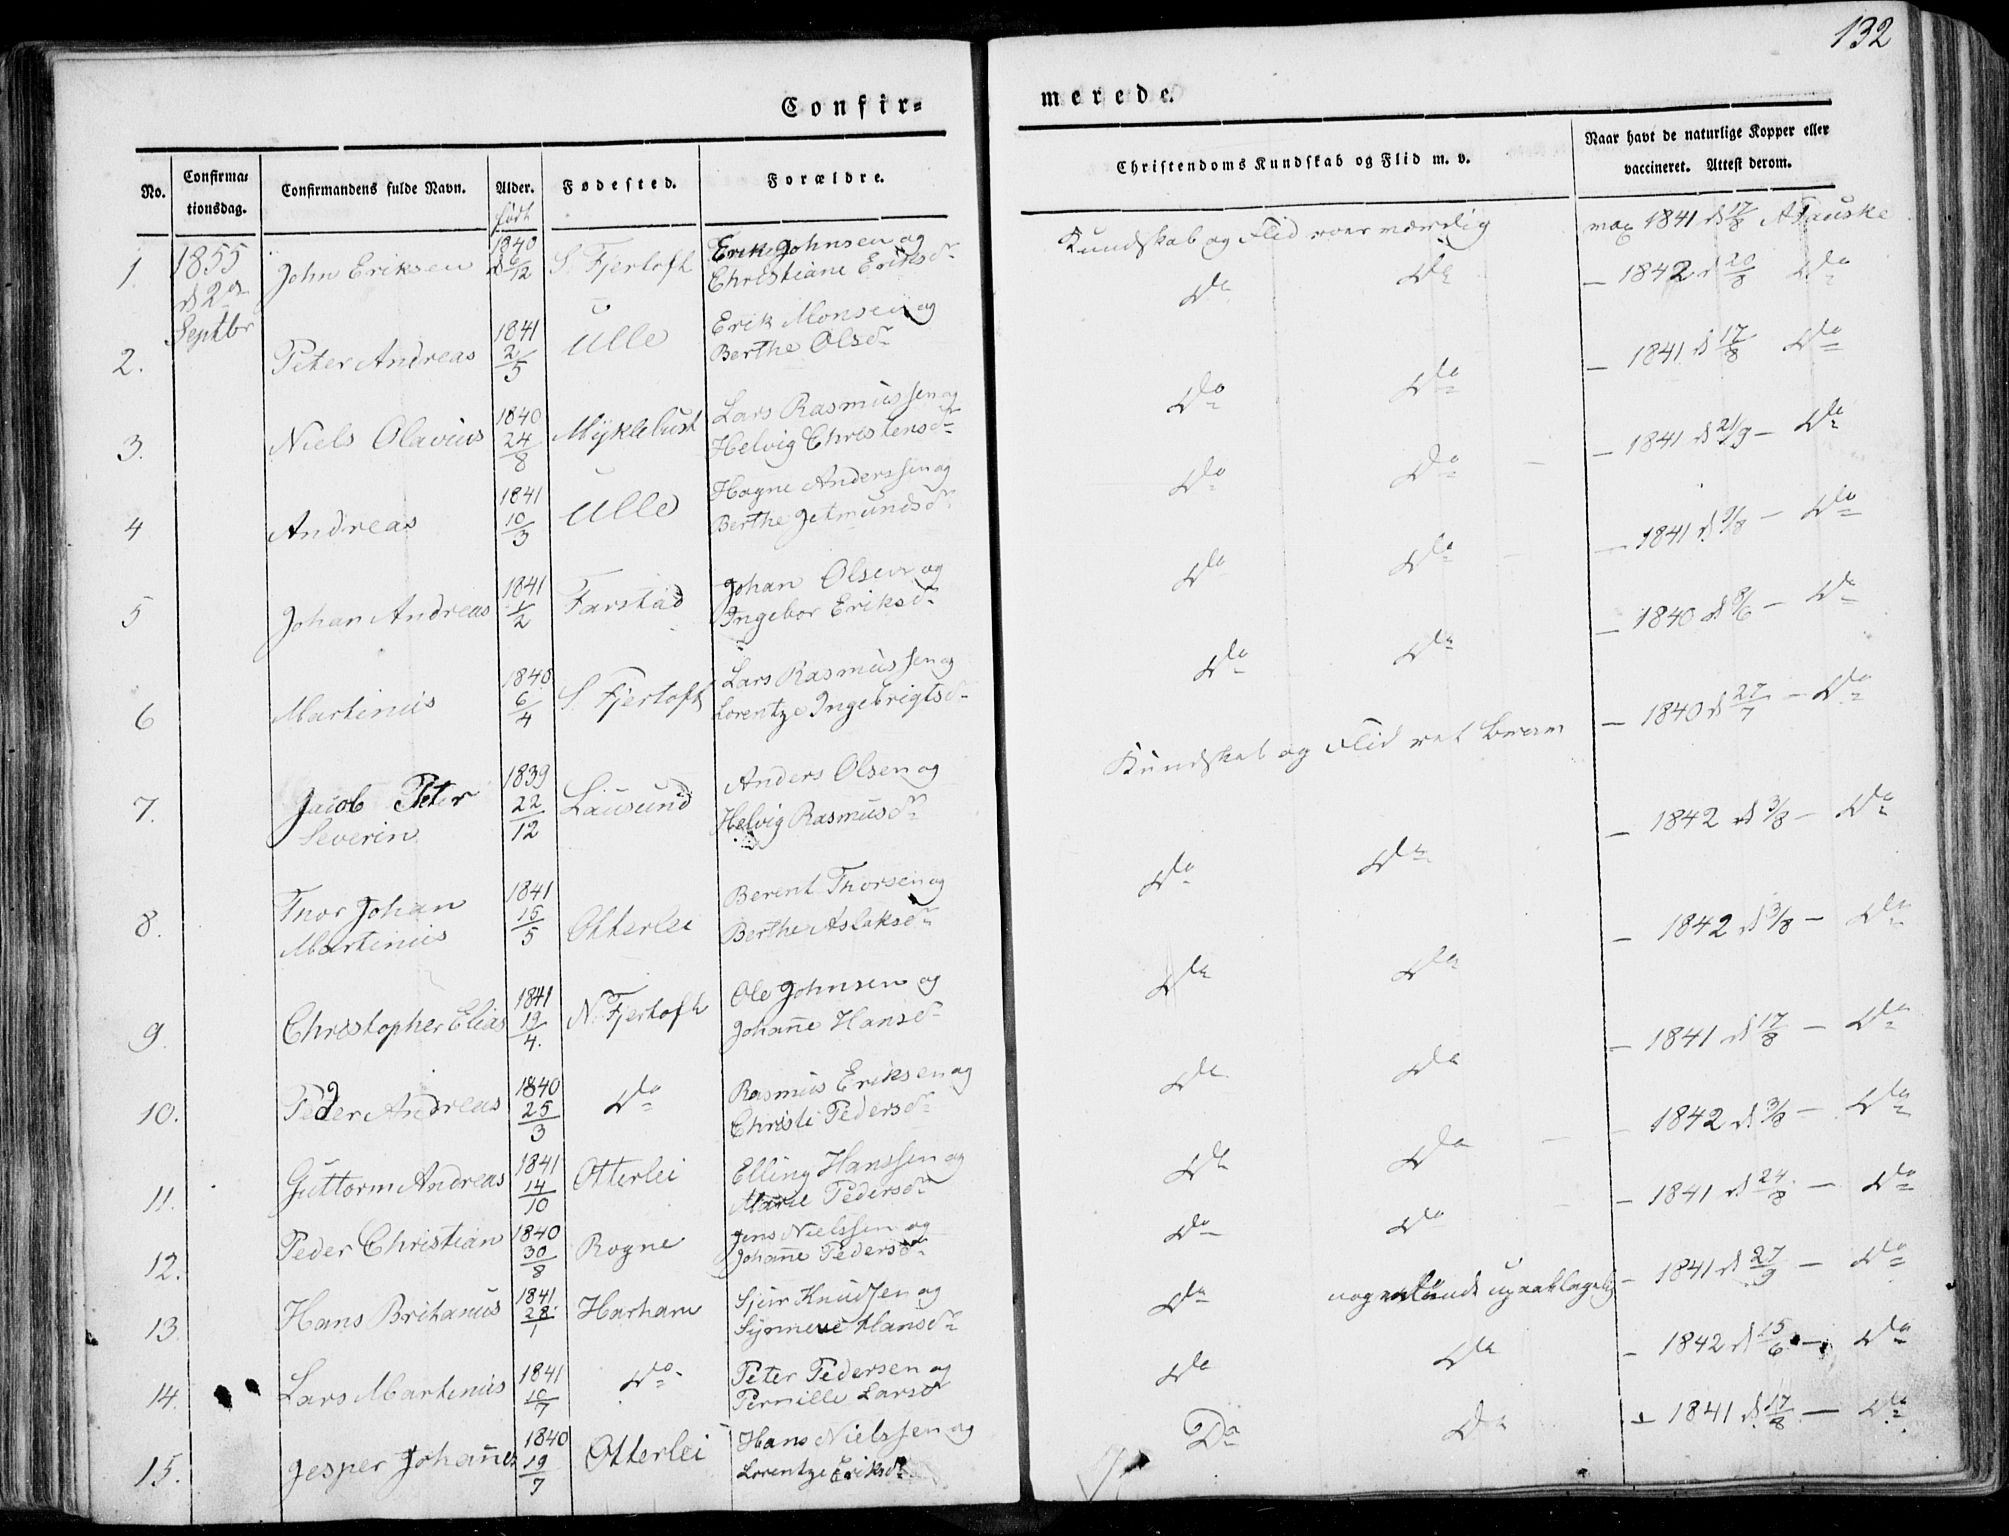 132
Confir-
merede.
No.
Confirma-
tionsdag.
Confirmandens fulde Navn.
Alder.
Fødested.
Forældre.
Christendoms Kundskab og Flid m. v.
Naar havt de naturlige Kopper eller
vaccineret. Attest derom.
født
1.
1855
d 2den
Septbr
John Eriksen
1840
d 6/12
S. Fjertoft
Erik Johnsen og
Christiane Eriksd
Kundskab og Flid
1841 d 17/8
2.
Peter Andreas
1841
2/5
Ulle
Erik Monsen og
Berthe Olsd
Do
Do
1842 d 20/8 Do
3.
Niels Olavius
1840
24/8
Myklebust
Lars Rasmussen og
Helvig Christensd
Do
Do
1841 d 17/8 Do
4
Andreas
1841
10/3
Ulle
Hagne Anderssen og
Berthe Jetmundsd
Do
Do
1841 d 21/9 - Do
5
Johan Andreas
1841
1/2
Farstad
Johan Olsen og
Ingebor Eriksd
Do
Do
1841 d 9/8 - Do
6
Martinus
1840
6/4
S. Fjertoft
Lars Rasmussen og
Lorentze Ingebrigtsd
Do
Do
1840 d 8/6 - Do
7.
Jacob Peter
Severin
1839
22/12
Lausund
Anders Olsen og
Helvig Rasmusd
Kundskab og Flid
1840 d 27/7 - Do
8.
Thor Johan
Martinus
1841
15/5
Otterlei
Berent Thorsen og
Berthe Aslaksd
Do
Do
1842 d 3/8 - Do
9.
Christopher Elias
1841
19/4.
N. Fjertoft
Ole Johnsen og
Johanne Hansd
Do
Do
1842 d 3/8 - Do
10.
Peder Andreas
1840
25/3
Do
Rasmus Eriksen og
Christi Pedersd
Do
Do
1841 d 17/8 - Do
11.
Guttorm Andreas
1841
14/10
Otterlei
Elling Hanssen og
Marie Pedersd
Do
Do
1842 d 3/8 - Do
12.
Peder Christian
1840
30/8
Rogne
Jens Nielssen og
Johanne Pedersd
Do
Do
1841 d 24/8 - Do
13.
Hans Britanus
1841
28/1
Harham
Sjur Knudsen og
Synneve Hansd
Do
1841 d 27/9 - Do
14.
Lars Martinus
1841
10/7
Do
Peter Pedersen og
Pernille Larsd
Do
Do
1842 d 15/6 - Do
15.
Jesper Johannes
1840
19/7
Otterlei
Hans Nielssen og
Lorentze Eriksd
Do
Do
1841 d 17/8 - Do